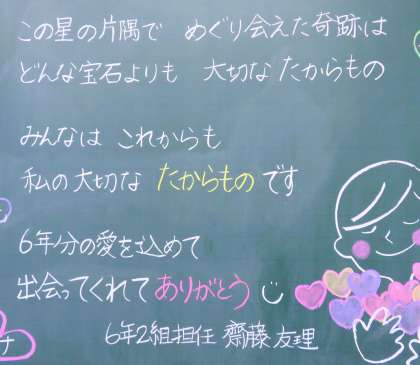 この星の片隅で めぐり会えた奇跡は
どんな宝石よりも 大切な たからもの
みんなは これからも
私の大切な たからもの です
6年分の愛を込めて
出会ってくれて ありがとう
6年2組担任 齋藤 友理